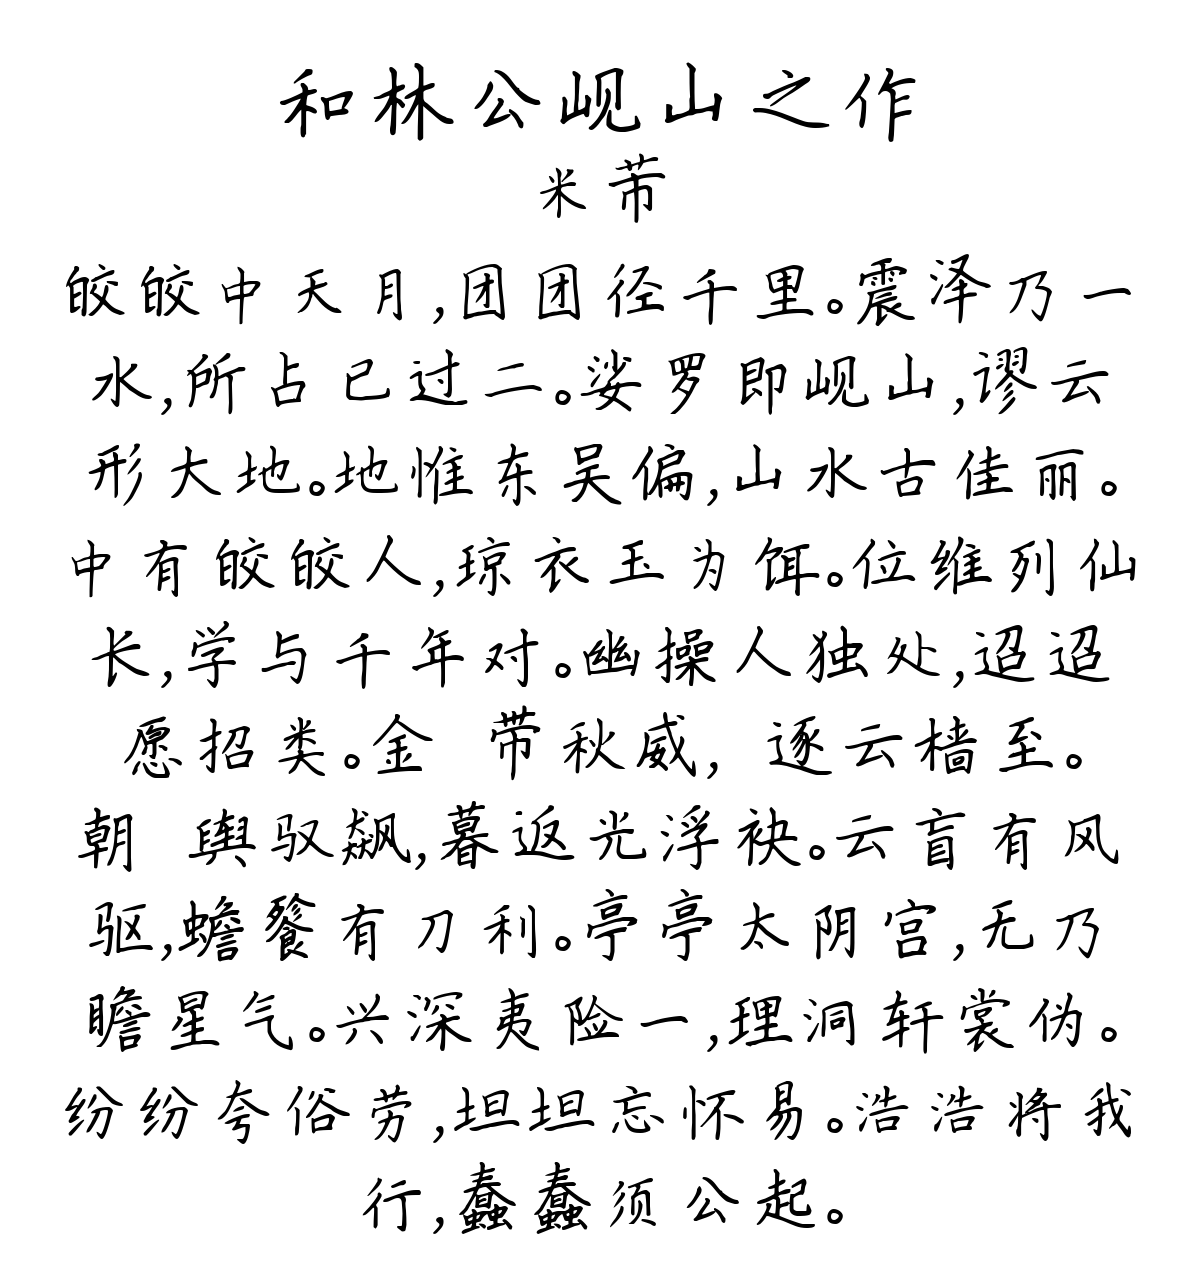 和林公岘山之作
米芾
皎皎中天月,团团径千里。震泽乃一
水,所占已过二。娑罗即岘山,谬云
形大地。地惟东吴偏,山水古佳丽。
中有皎皎人,琼衣玉为饵。位维列仙
长,学与千年对。幽操人独处,迢迢
愿招类。金 带秋威, 逐云樯至。
朝 舆驭飙,暮返光浮袂。云盲有风
驱,蟾餮有刀利。亭亭太阴宫,无乃
瞻星气。兴深夷险一,理洞轩裳伪。
纷纷夸俗劳,坦坦忘怀易。浩浩将我
行,蠢蠢须公起。